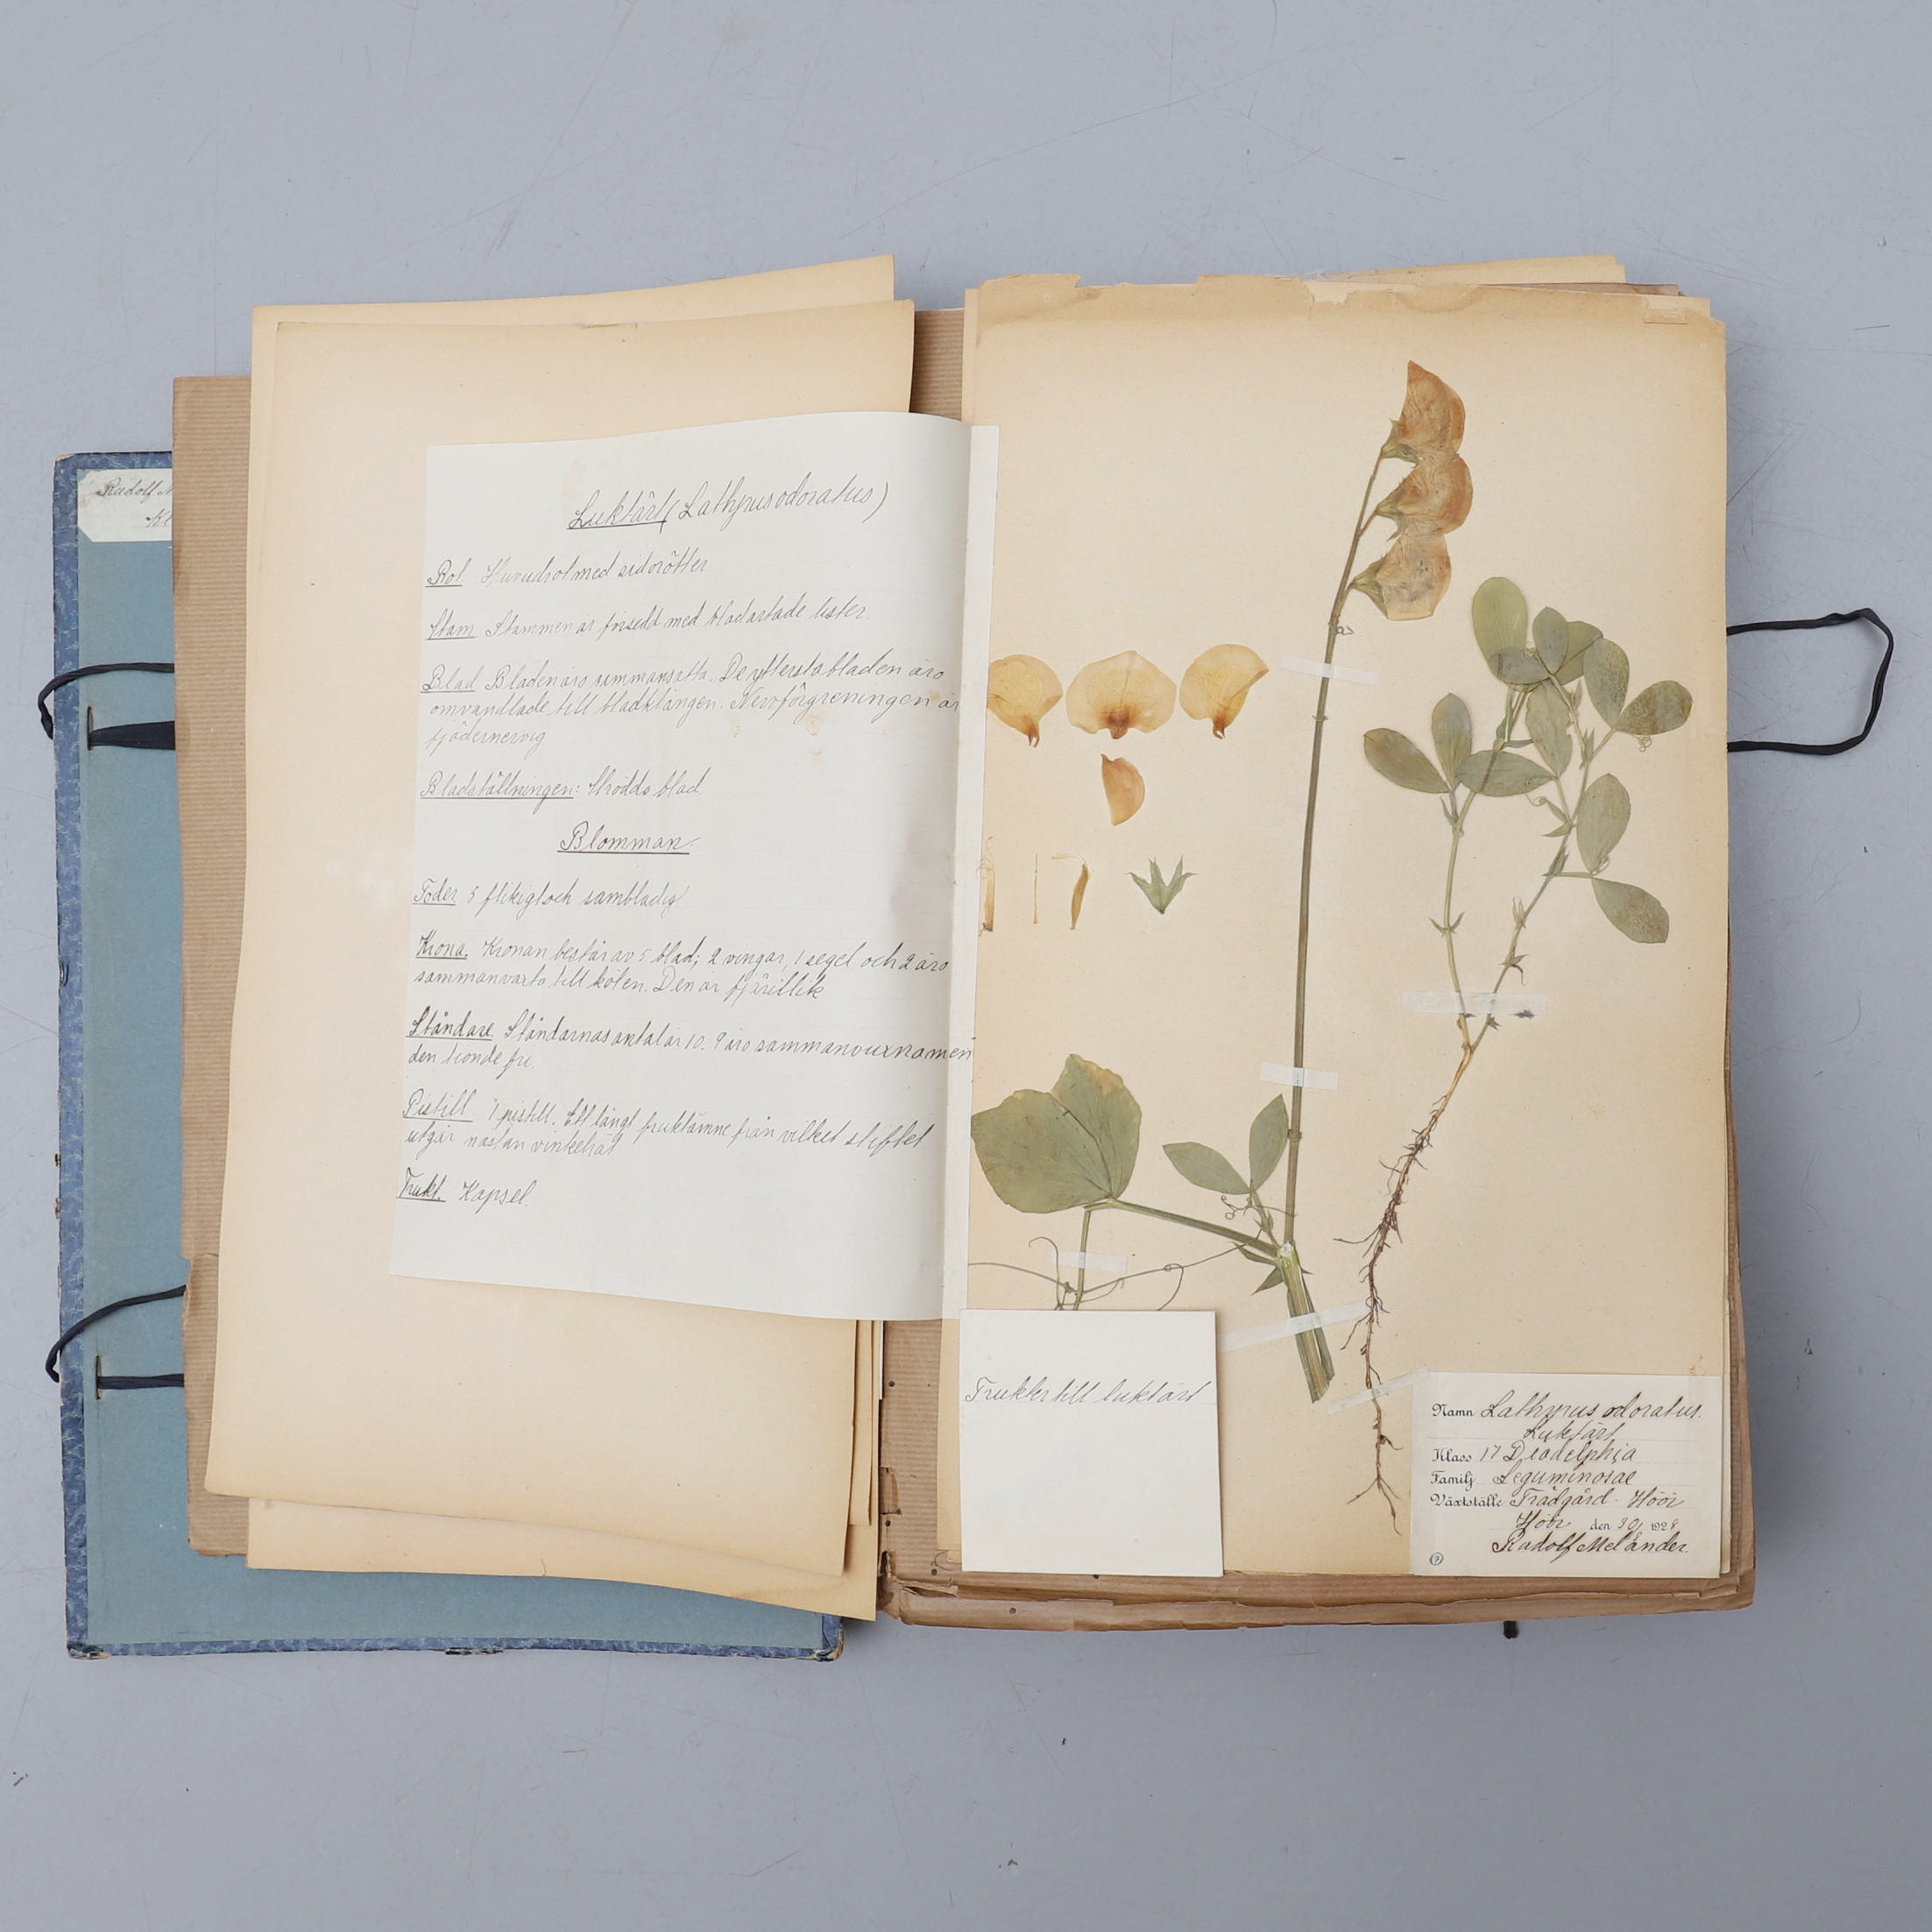 Rudolf M
Kl
Luktärt (Lathyrus odoratus)
Rot Huvudrot med sidorötter
Stam Stammen är försedd med bladartade lister.
Blad Bladen äro sammansatta. De yttersta bladen äro
omvandlade till bladklängen. Nervförgreningen är
fjädernervig
Bladställningen: Strödda blad
Blomman.
Foder 5 flikigt och sambladig
Krona. Kronan består av 5 blad; 2 vingar, 1 segel och 2 äro
sammanvarta till kölen. Den är fjärillik
Ståndare Ståndarnas antal är 10. 9 äro sammanvuxna men
den tionde fri.
Pistill 1 pistill. Ett långt fruktämne från vilket stiftet
utgår nästan vinkelrät
Frukt. Kapsel.
Frukter till luktärt
Namn Lathyrus odoratus.
Luktärt
Klass 17 Diadelphia
Familj Leguminosae
Växtställe Trädgård - Höör
Höör den 30/ 1928
Rudolf Melander.